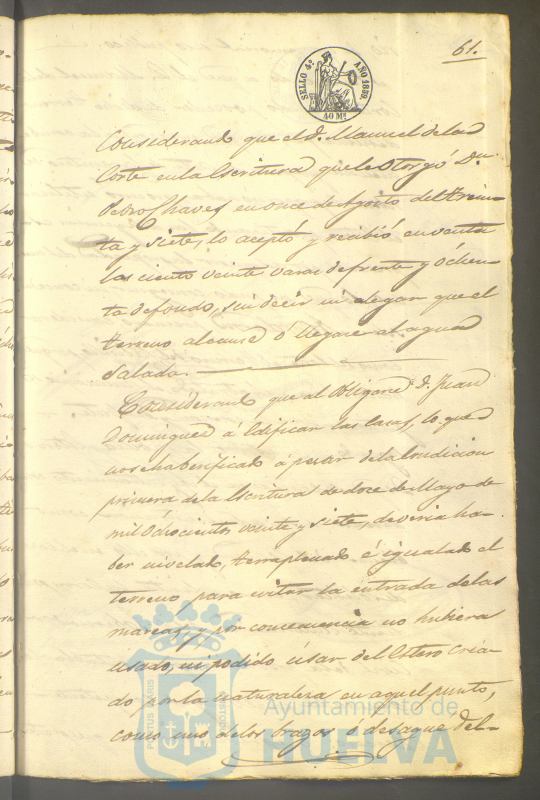 61.
SELLO 4º AÑO 1859
40 Ms
Considerando que el D. Manuel de la
Corte en la Escritura que le Otorgó Dn
Pedro Chaves en once de Agosto del trein-
ta y siete, lo aceptó y recibió en venta
las ciento veinte varas de frente y ochen-
ta de fondo, sin decir ni alegar que el
terreno alcance ó llegare al agua
Salada.
Considerando que al Obligarse D. Juan
Dominguez á Edificar las casas, lo que
no se ha berificado á pesar de la Condicion
primera de la Escritura de doce de Mayo de
mil Ochocientos veinte y siete, deveria ha-
ber nivelado, terraplenado é igualado el
terreno, para evitar la entrada de las
mareas, y por consecuencia no hubiera
usado, ni podido úsar del Estero cria-
do por la naturaleza en aquel punto,
como uno de los brazos ó desague del-
Ayuntamiento de
HUELVA